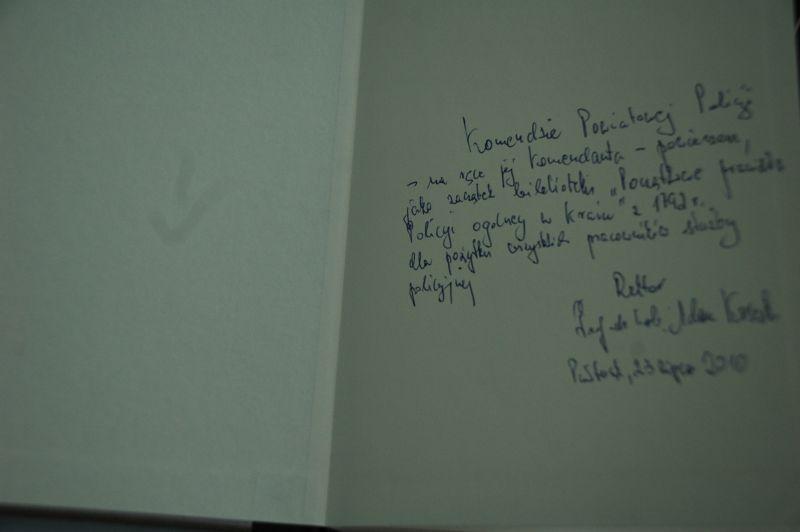 Komendzie Powiatowej Policji
- na ręce jej Komendanta - powierzam,
jako zaczątek biblioteki "Początkowe prawidła
Policyi ogólney w Kraiu" z 1792 r.
dla pożytku wszystkich pracowników służby
policyjnej
Rektor
Prof. dr hab. Adam
Pułtusk, 23 lipca 2010